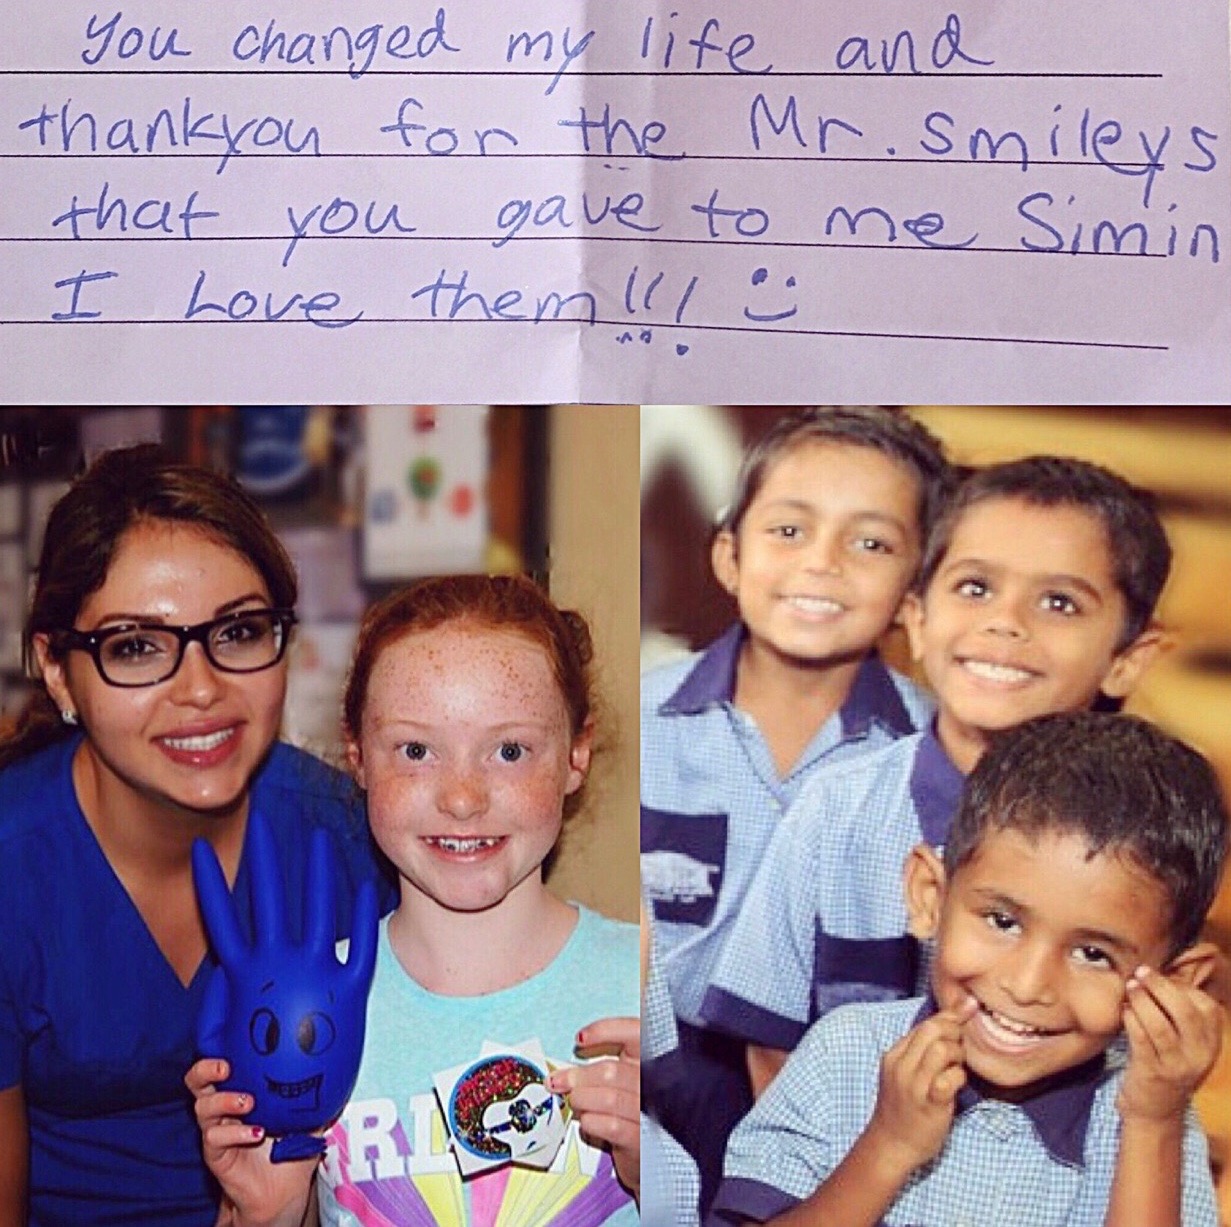 you changed my life and
thankyou for the Mr. smileys
that you gave to me Simin
I Love them!!! :)